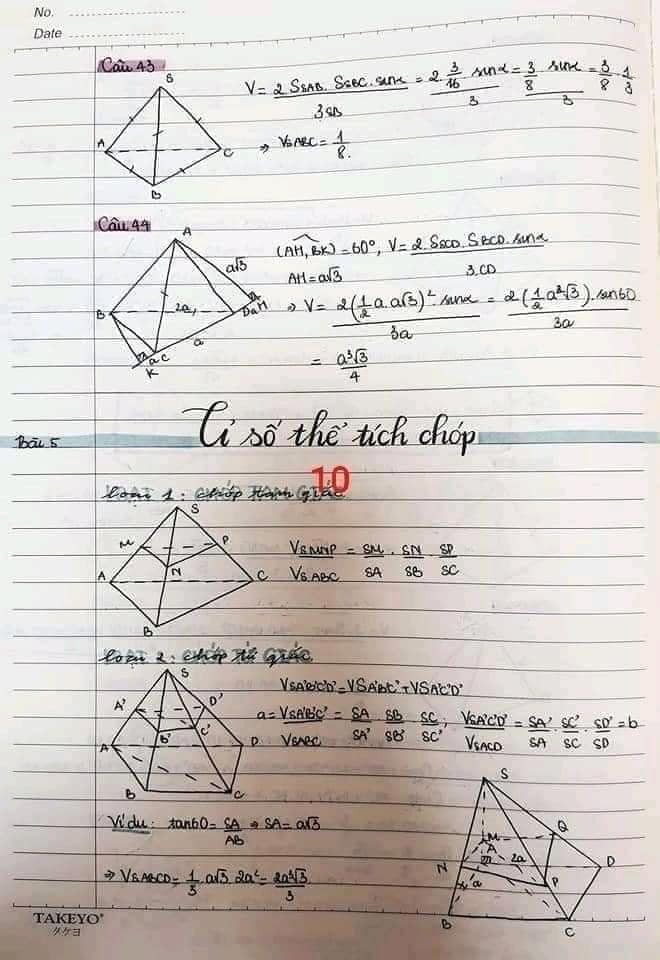 No.
Date
Câu 43
S
A
C
B
V = 2 S_SAB. S_SBC. sinα / 3SB = 2. 3/16 sinα / 3 = 3/8 sinα / 3 = 3/8 . 1/3
⇒ V_SABC = 1/8.
Câu 44
A
a√3
B
2a
D a H
a
a C
K
(AH, BK) = 60°, V = 2. S_SCD. S_BCD. sinα / 3.CD
AH = a√3
⇒ V = 2(1/2 a. a√3)² sinα / 3a = 2(1/2 a²√3). sin60 / 3a
= a³√3 / 4
Bài 5
Tỉ số thể tích chóp
10
Loại 1: chóp tam giác
S
M
P
A
N
C
B
V_SMNP / V_SABC = SM/SA . SN/SB . SP/SC
Loại 2: chóp tứ giác
S
A'
D'
B'
C'
A
D
B
C
V_SA'B'C'D' = V_SA'B'C' + V_SA'C'D'
a = V_SA'B'C' / V_SABC = SA/SA' . SB/SB' . SC/SC' ; V_SA'C'D' / V_SACD = SA'/SA . SC'/SC . SD'/SD = b
Ví dụ: tan60 = SA/AB ⇒ SA = a√3
⇒ V_SABCD = 1/3 a√3 2a² = 2a³√3 / 3
S
M
Q
A
N
2a
D
a
P
B
C
TAKEYO®
タケヨ